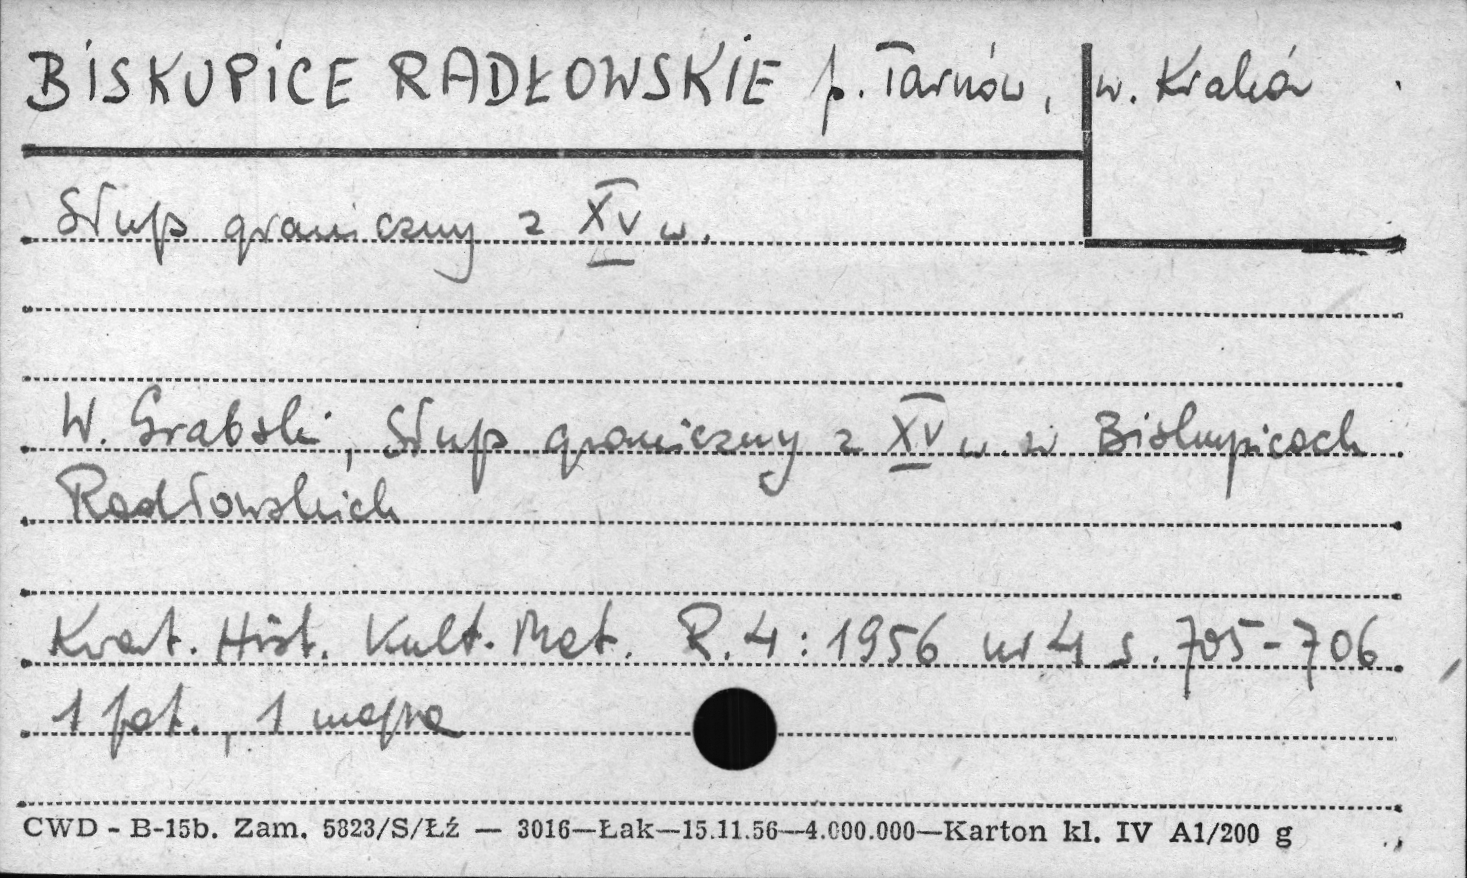 BISKUPICE RADŁOWSKIE p. Tarnów, w. Kraków
Słup graniczny z XV w.
W. Grabski, Słup graniczny z XV w. w Biskupicach
Radłowskich
Kwart. Hist. Kult. Mat. R. 4 : 1956 nr 4 s. 705-706
1 fot., 1 mapa
CWD - B-15b. Zam. 5823/S/Łź — 3016—Łak—15.11.56—4.000.000—Karton kl. IV A1/200 g